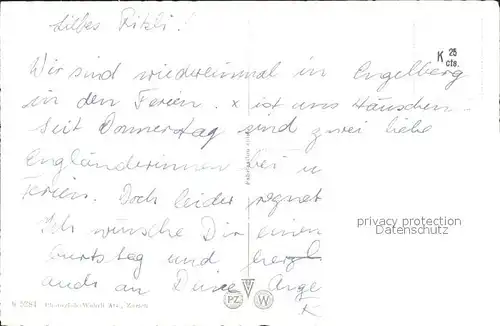 Liebes Ritzli!
K 25 cts.
Wir sind wiedereinmal in Engelberg
in den Ferien. x ist uns Häuschen.
Seit Donnerstag sind zwei liebe
Engländerinnen bei u
Ferien. Doch leider regnet
Ich wünsche Dir einen
burtstag und herzl
auch an Deine Ange
privacy protection
Datenschutz
PZ
W
N 5284